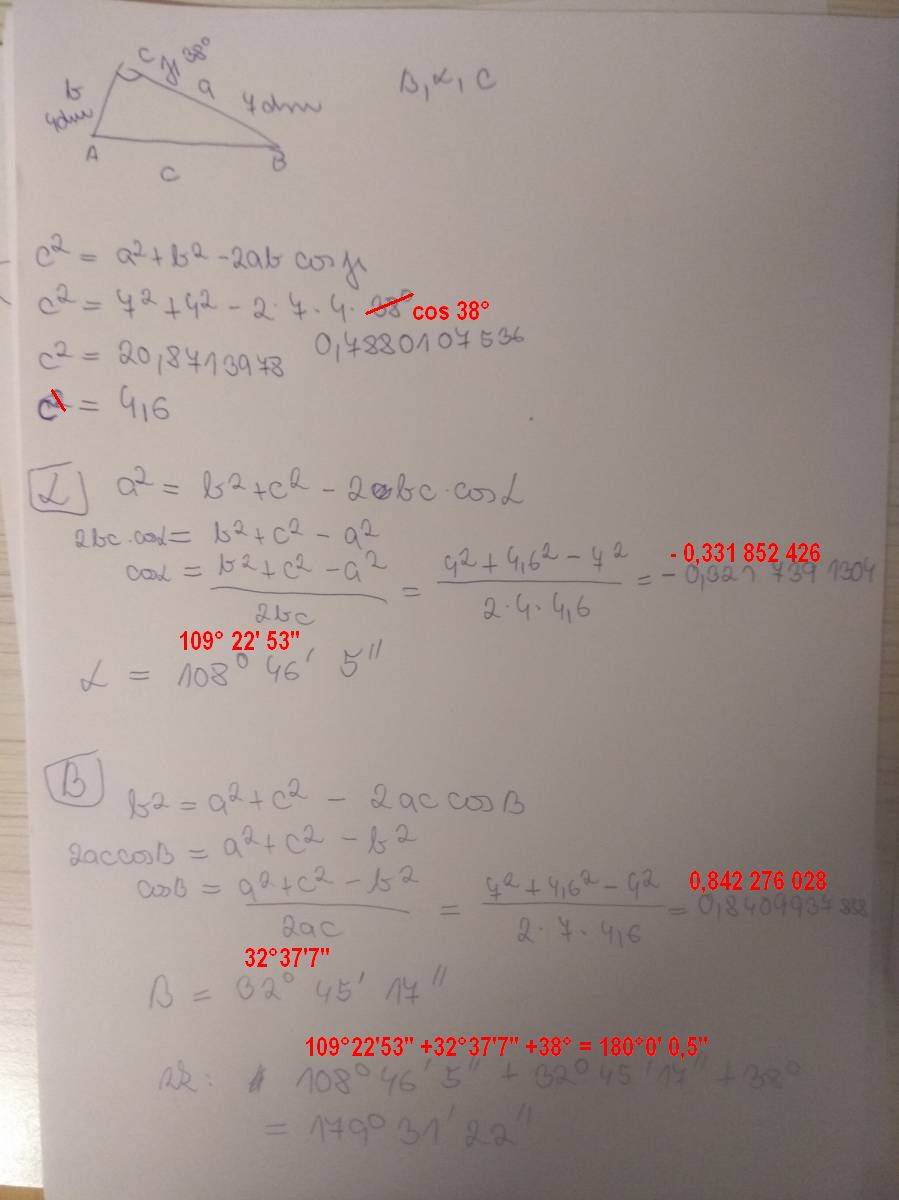 C γ 38°
b a
4dm 7dm β, α, c
A B
c
c² = a² + b² - 2ab cos γ
c² = 7² + 4² - 2·7·4· 38° cos 38°
0,7880107536
c² = 20,8713978
c² = 4,6
α a² = b² + c² - 2bc·cosα
2bc·cosα = b² + c² - a²
cosα = b² + c² - a² / 2bc = 4² + 4,6² - 7² / 2·4·4,6 = - 0,321 739 1304
- 0,331 852 426
109° 22' 53"
α = 108° 46' 5"
β b² = a² + c² - 2ac cosβ
2ac cosβ = a² + c² - b²
cosβ = a² + c² - b² / 2ac = 7² + 4,6² - 4² / 2·7·4,6 = 0,8409937888
0,842 276 028
32°37'7"
β = 32° 45' 17"
109°22'53" +32°37'7" +38° = 180°0' 0,5"
zk: 108° 46' 5" + 32° 45' 17" + 38°
= 179° 31' 22"